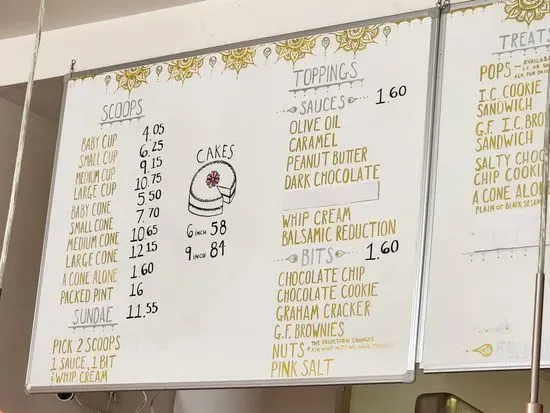 SCOOPS
BABY CUP 4.05
SMALL CUP 6.25
MEDIUM CUP 9.15
LARGE CUP 10.75
BABY CONE 5.50
SMALL CONE 7.70
MEDIUM CONE 10.65
LARGE CONE 12.15
A CONE ALONE 1.60
PACKED PINT 16
SUNDAE 11.55
PICK 2 SCOOPS
1 SAUCE, 1 BIT
WHIP CREAM
CAKES
6 INCH 58
9 INCH 84
TOPPINGS
SAUCES 1.60
OLIVE OIL
CARAMEL
PEANUT BUTTER
DARK CHOCOLATE
WHIP CREAM
BALSAMIC REDUCTION
BITS 1.60
CHOCOLATE CHIP
CHOCOLATE COOKIE
GRAHAM CRACKER
G.F. BROWNIES
NUTS THE SELECTION CHANGES
ASK WHAT NUTS WE HAVE TODAY!
PINK SALT
TREATS
POPS ~ AVAILABLE
ASK FOR
I.C. COOKIE
SANDWICH
G.F. I.C. BRO
SANDWICH
SALTY CHOC
CHIP COOKI
A CONE ALON
PLAIN or BLACK SESAM